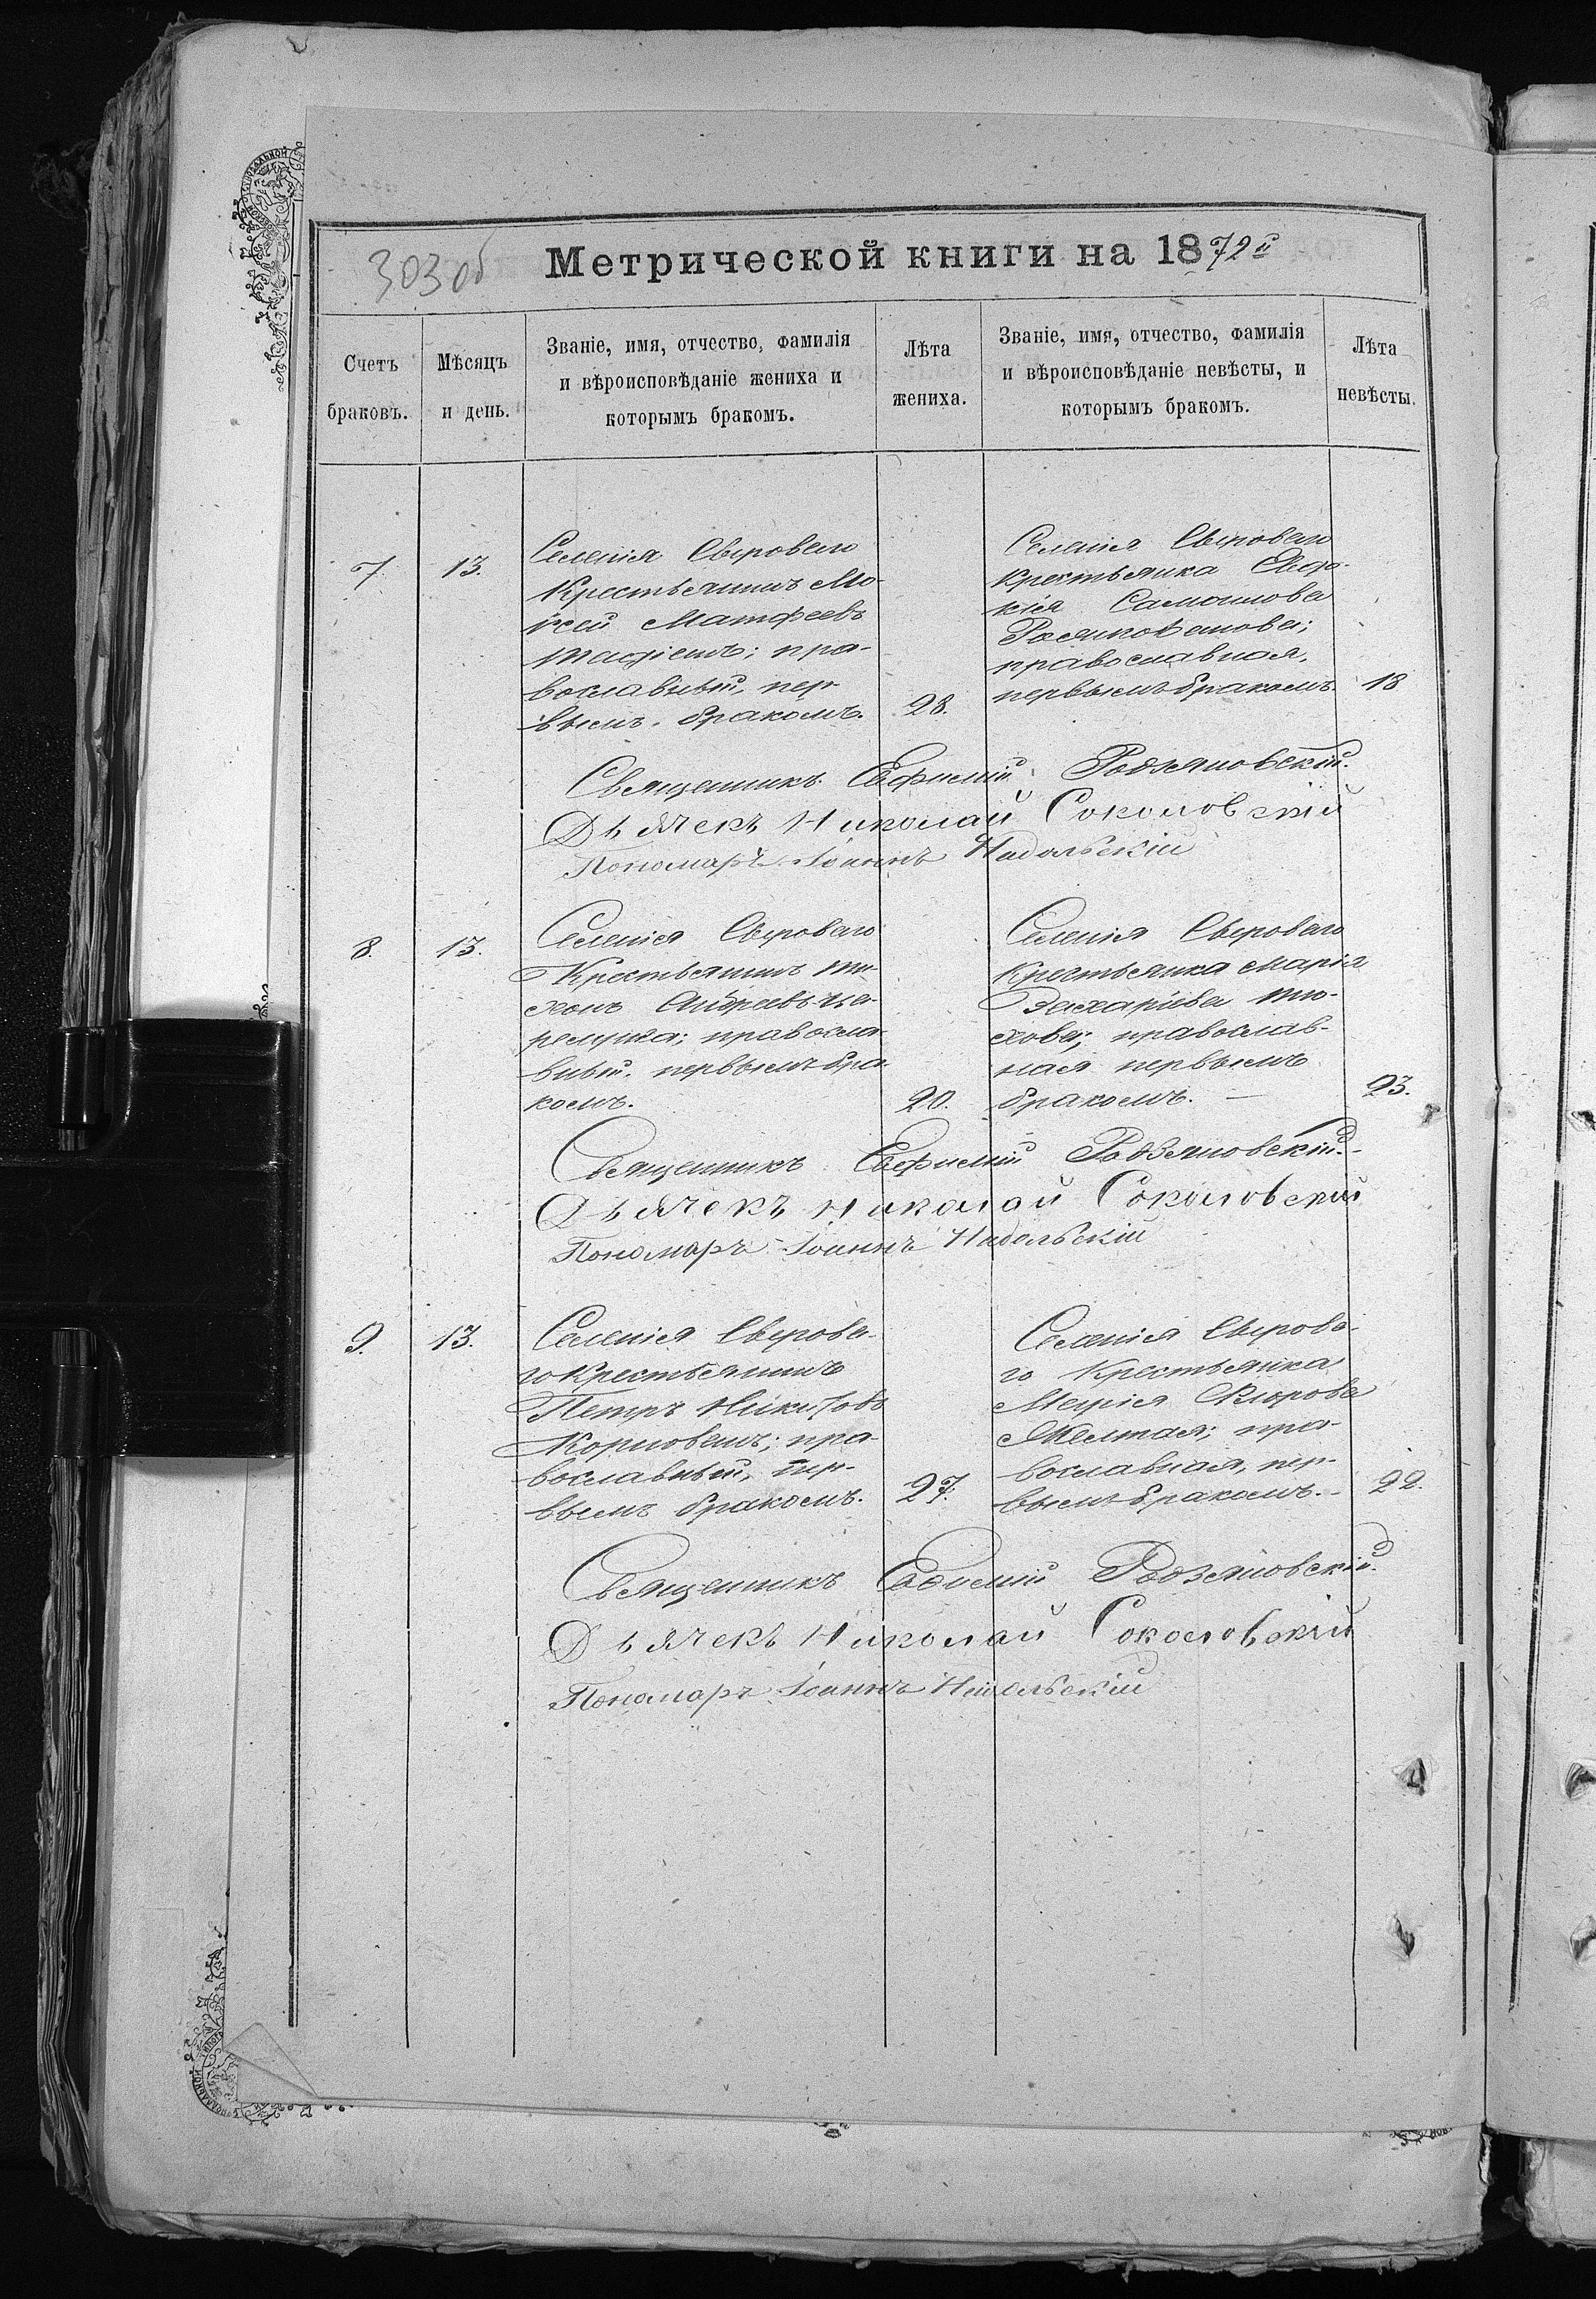 303 об Метрической книги на 1872й
Счетъ браковъ.
Мѣсяцъ и день.
Званіе, имя, отчество, фамилія
и вѣроисповѣданіе жениха и
которымъ бракомъ.
Лѣта жениха.
Званіе, имя, отчество, фамилія
и вѣроисповѣданіе невѣсты, и
которымъ бракомъ.
Лѣта невѣсты.
7. 13.
Селенія Сыроваго
Крестьянинъ Мо-
ѵсей Матфеевъ
пра-
вославный, пер-
вымъ бракомъ.
28.
Селенія Сыроваго
крестьянка Евдо-
кія Самоилова
православная,
первымъ бракомъ.
18
Священникъ Евфимій Родзяновскій.
Дьячекъ Николай Соколовскій
Пономарь Іоаннъ Надольскій
8. 13.
Селенія Сыроваго
Крестьянинъ Ти-
хонъ Андреевъ Це-
ремуга; правосла-
вный, первымъ бра-
комъ.
20.
Селенія Сыроваго
Крестьянка Марія
Захаріева
православ-
ная первымъ
бракомъ. —
23.
Священникъ Евфимій Родзяновскій.
Дьячекъ Николай Соколовскій
Пономарь Іоаннъ Надольскій
9. 13.
Селенія Сырова-
го Крестьянинъ
Петръ Никитовъ
пра-
вославный, пер-
вымъ бракомъ.
27.
Селенія Сырова-
го Крестьянка
Марія
Желтая; пра-
вославная, пер-
вымъ бракомъ. -
22.
Священникъ Евфимій Родзяновскій.
Дьячекъ Николай Соколовскій
Пономарь Іоаннъ Надольскій